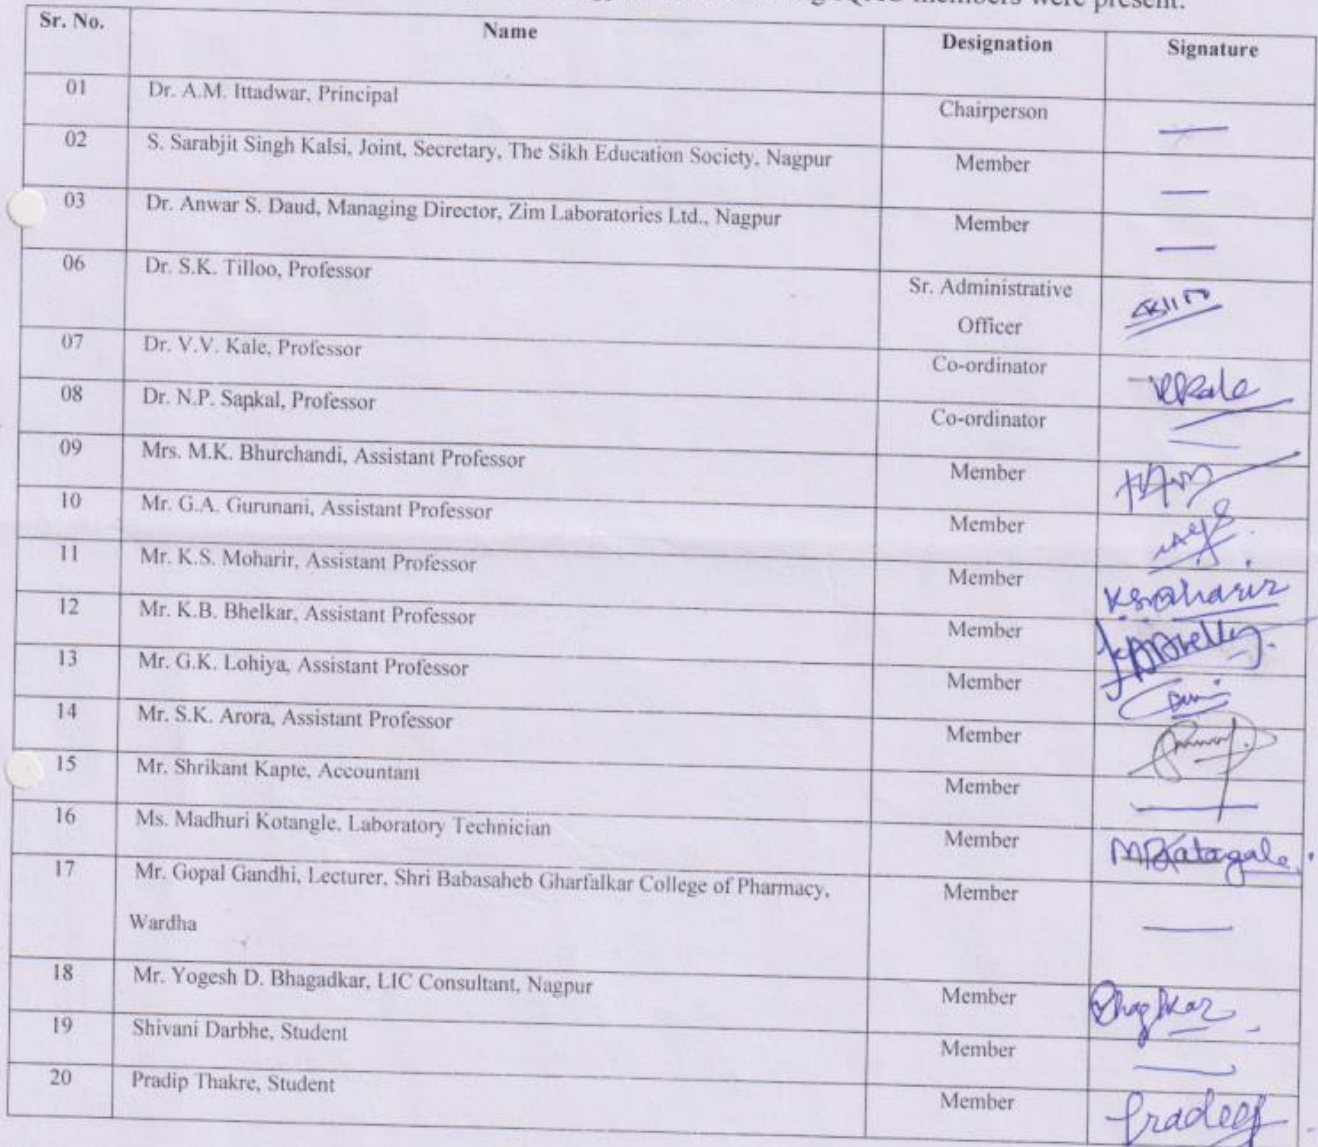 members were present.
Sr. No. Name Designation Signature
01 Dr. A.M. Ittadwar, Principal Chairperson —
02 S. Sarabjit Singh Kalsi, Joint, Secretary, The Sikh Education Society, Nagpur Member —
03 Dr. Anwar S. Daud, Managing Director, Zim Laboratories Ltd., Nagpur Member —
06 Dr. S.K. Tilloo, Professor Sr. Administrative
Officer
07 Dr. V.V. Kale, Professor Co-ordinator VKale
08 Dr. N.P. Sapkal, Professor Co-ordinator —
09 Mrs. M.K. Bhurchandi, Assistant Professor Member
10 Mr. G.A. Gurunani, Assistant Professor Member
11 Mr. K.S. Moharir, Assistant Professor Member KSMoharir
12 Mr. K.B. Bhelkar, Assistant Professor Member
13 Mr. G.K. Lohiya, Assistant Professor Member
14 Mr. S.K. Arora, Assistant Professor Member
15 Mr. Shrikant Kapte, Accountant Member —
16 Ms. Madhuri Kotangle, Laboratory Technician Member
17 Mr. Gopal Gandhi, Lecturer, Shri Babasaheb Gharfalkar College of Pharmacy, Member —
Wardha
18 Mr. Yogesh D. Bhagadkar, LIC Consultant, Nagpur Member
19 Shivani Darbhe, Student Member —
20 Pradip Thakre, Student Member Pradeep